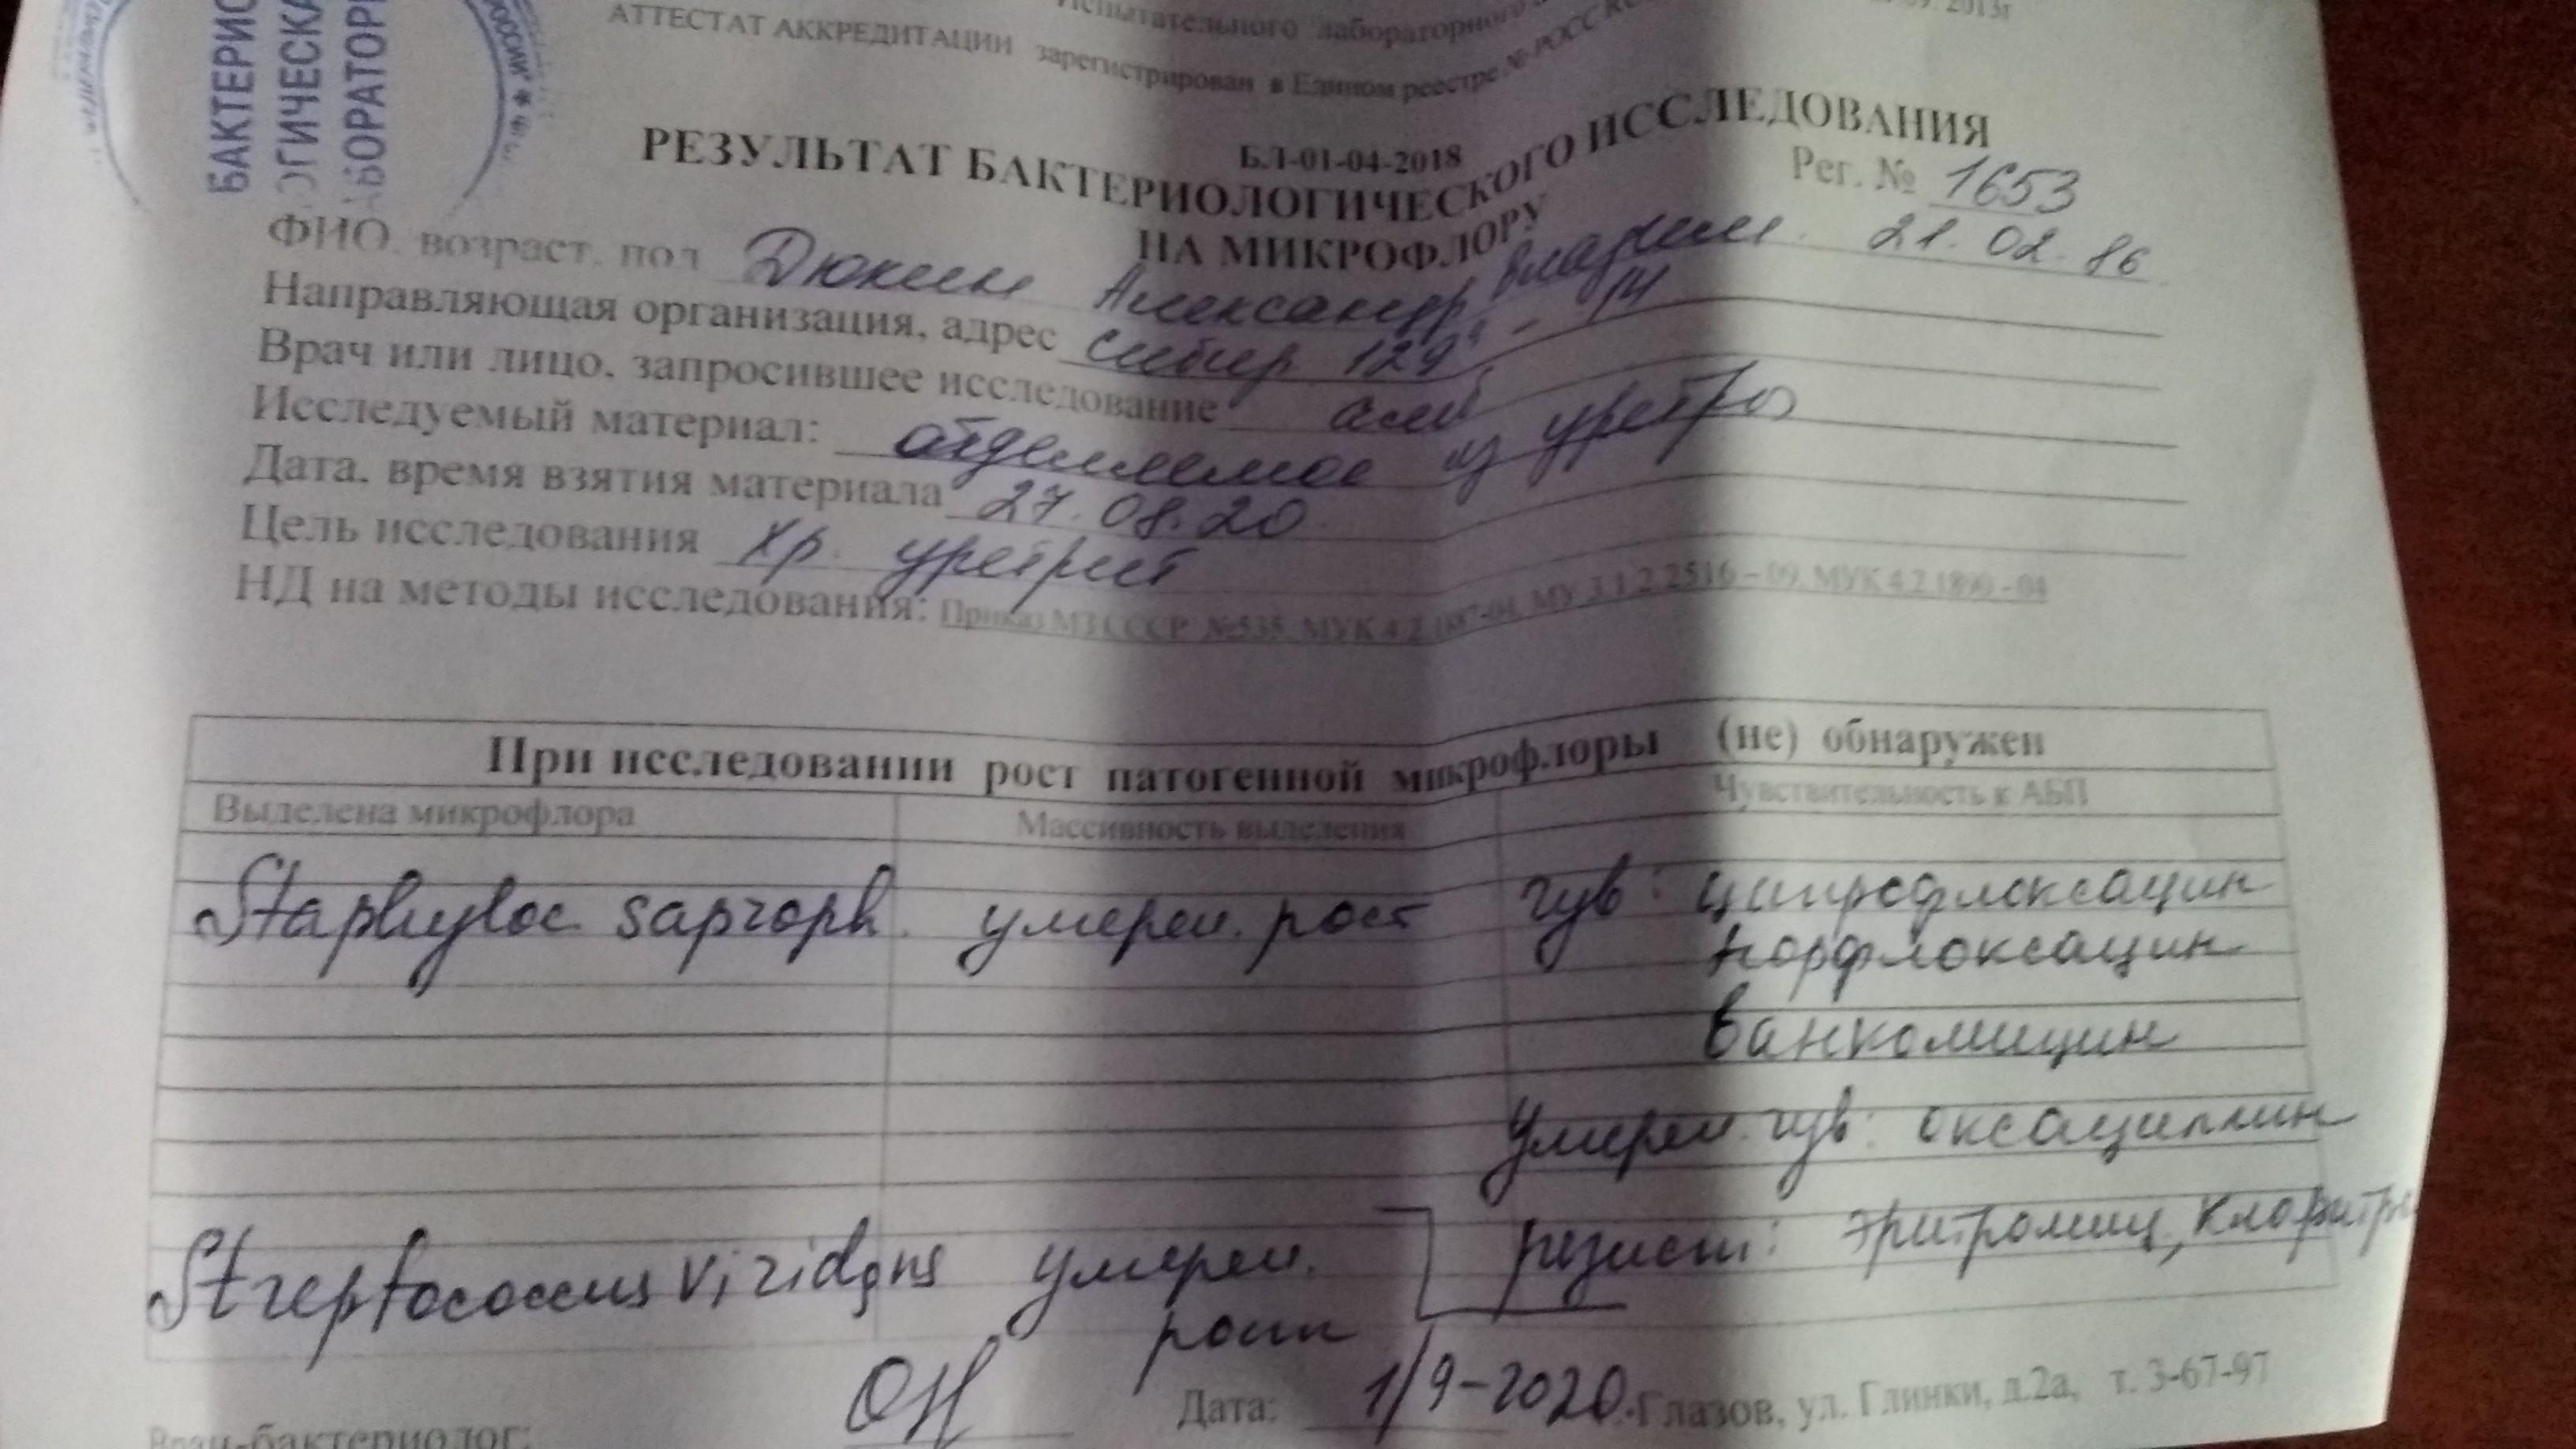 БАКТЕРИО
ОГИЧЕСКА
АБОРАТОРИ
РОССИИ
Испытательного лабораторного
2013г
АТТЕСТАТ АККРЕДИТАЦИИ зарегистрирован в Едином реестре № РОСС
РЕЗУЛЬТАТ БАКТЕРИОЛОГИЧЕСКОГО ИССЛЕДОВАНИЯ
БЛ-01-04-2018
НА МИКРОФЛОРУ
Рег. № 1653
ФИО, возраст, пол Дюкин Александр Владим. 21.02.86
Направляющая организация, адрес Сибир 129 - 14
Врач или лицо, запросившее исследование сам
Исследуемый материал: отделяемое из уретры
Дата, время взятия материала 27.08.20
Цель исследования Хр. уретрит
НД на методы исследования: Приказ МЗ СССР №535, МУК 4.2.1887-04, МУ 3.1.2.2516 – 09, МУК 4.2.1890 - 04
При исследовании рост патогенной микрофлоры (не) обнаружен
Выделена микрофлора Массивность выделения Чувствительность к АБП
Staphyloc. saproph. умерен. рост чув: ципрофлоксацин
норфлоксацин
ванкомицин
Умерен. чув: оксациллин
Streptococcus viridans умерен. резист: эритромиц, кларитр
рост
Дата: 1/9-2020 г. Глазов, ул. Глинки, д.2а, т. 3-67-97
Врач-бактериолог: